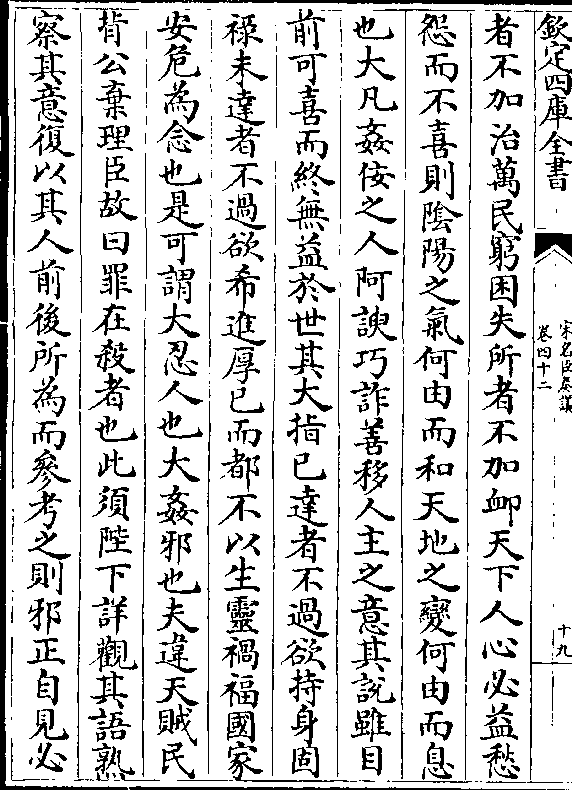 欽定四庫全書
宋名臣奏議
卷四十二
十九
者不加治萬民窮困失所者不加卹天下人心必益愁
怨而不喜則隂陽之氣何由而和天地之變何由而息
也大凡姦佞之人阿諛巧詐善移人主之意其說雖目
前可喜而終無益於世其大指已達者不過欲持身固
祿未達者不過欲希進厚已而都不以生靈禍福國家
安危為念也是可謂大忍人也大姦邪也夫違天賊民
背公棄理臣故曰罪在殺者也此須陛下詳觀其語熟
察其意復以其人前後所為而參考之則邪正自見必